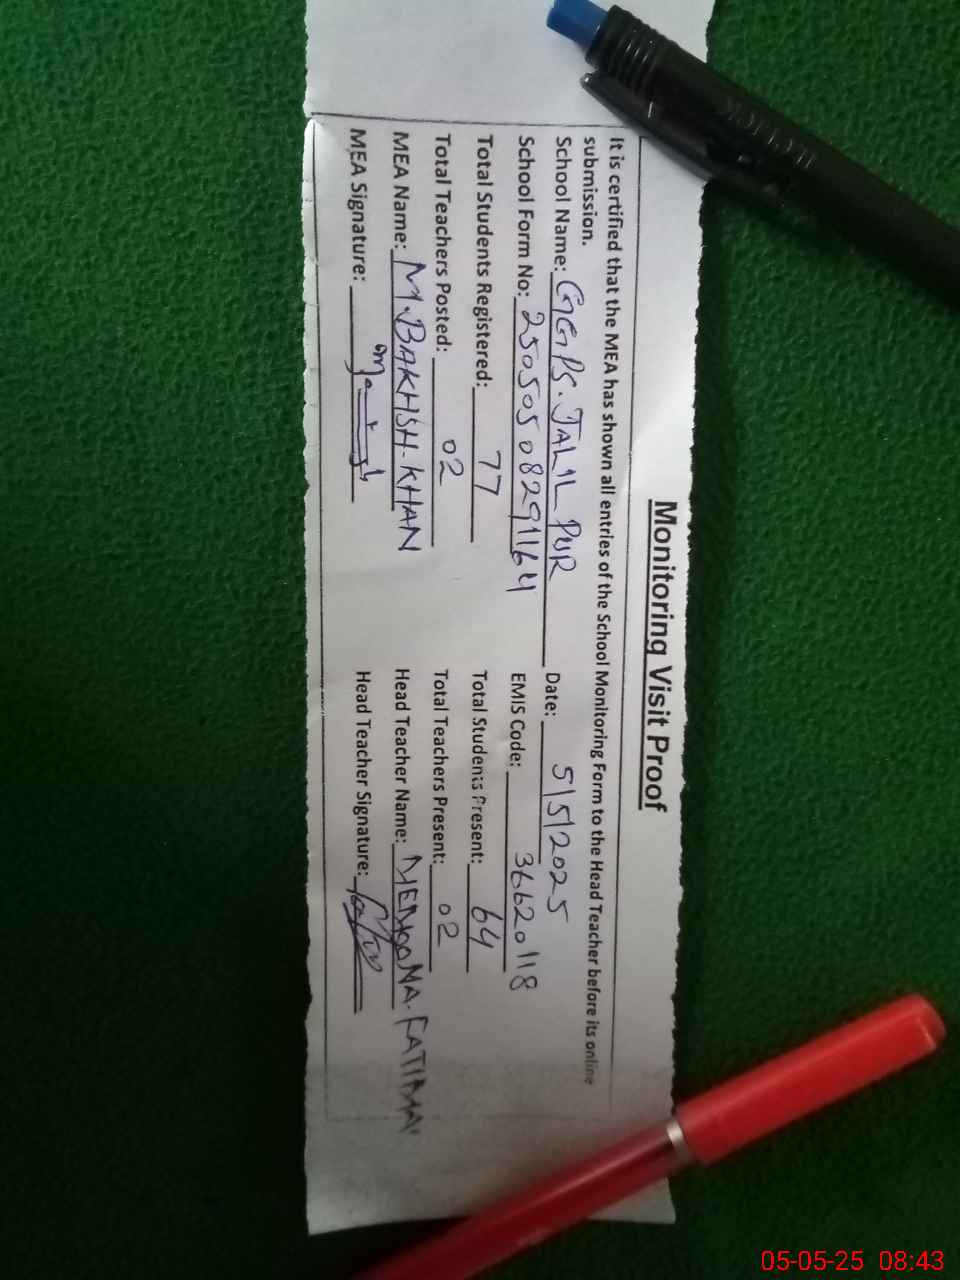 Monitoring Visit Proof
It is certified that the MEA has shown all entries of the School Monitoring Form to the Head Teacher before its online
submission.
School Name: GGPS. JALIL PUR Date: 5/5/2025
School Form No: 25050508291164 EMIS Code: 36620118
Total Students Registered: 77 Total Students Present: 64
Total Teachers Posted: 02 Total Teachers Present: 02
MEA Name: M. BAKHSH. KHAN Head Teacher Name: MEMOONA. FATIMA.
MEA Signature: Head Teacher Signature:
05-05-25 08:43